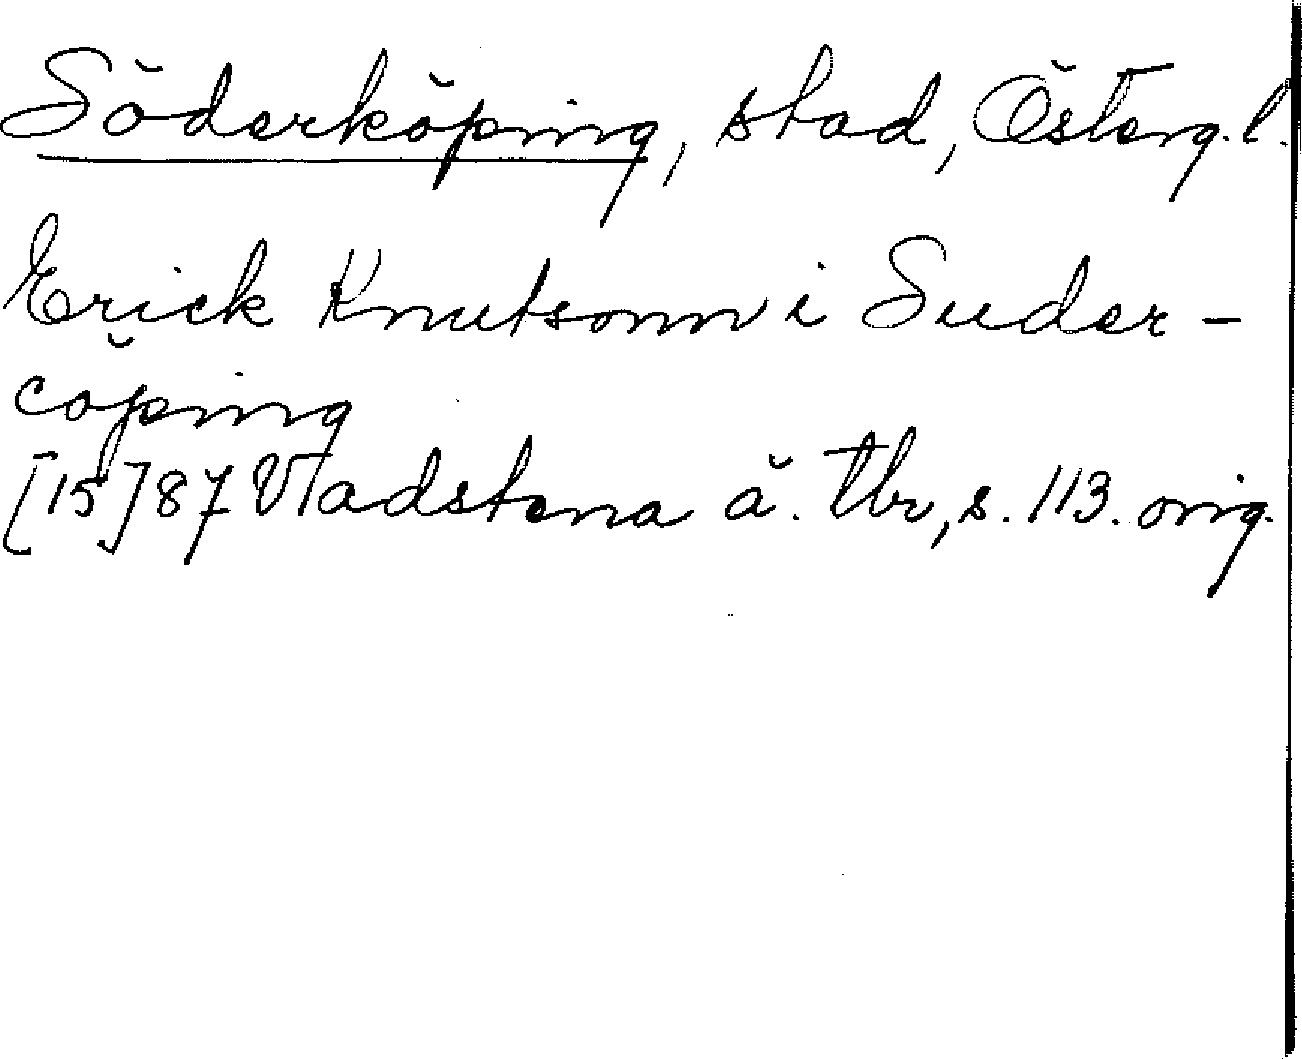 Söderköping, stad, Österg.l.
Erick Knutsonn i Suder-
cöping
[15]87 Vadstena ä. Tbr, s. 113. orig.